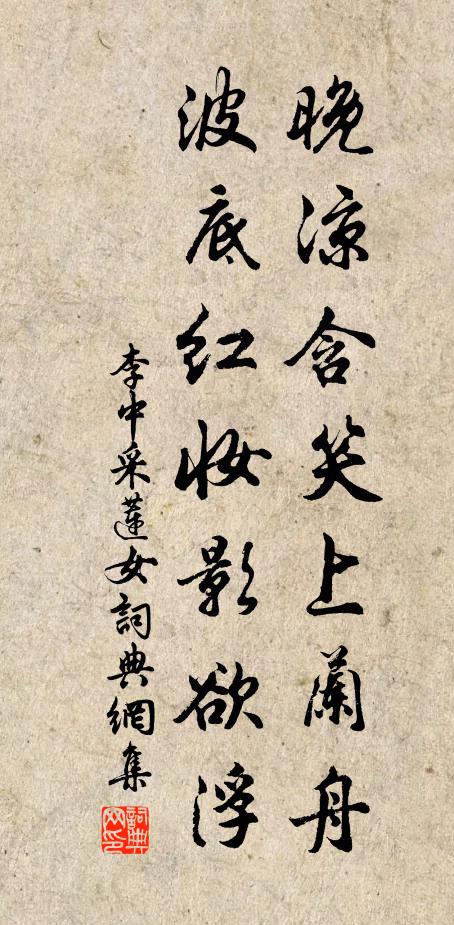 晚凉含笑上蘭舟
波底红妆影欲浮
李中采蓮女詞典網集
詞典网印